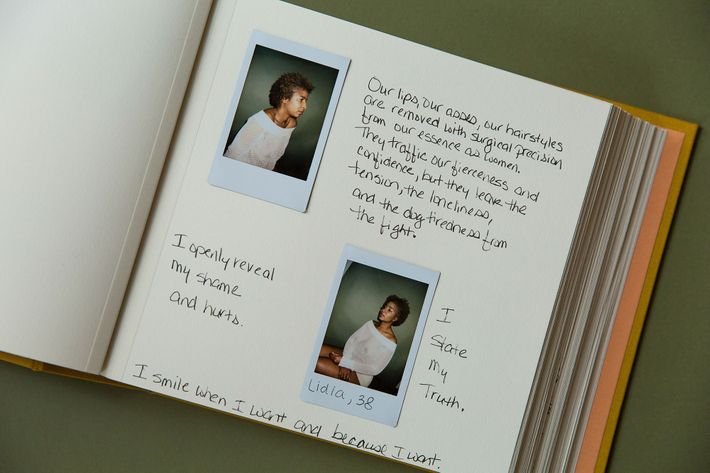 Our lips, our asses, our hairstyles
are removed with surgical precision
from our essence as women.
They traffic our fierceness and
confidence, but they leave the
tension, the loneliness,
and the dog tiredness from
the fight.
I openly reveal
my shame
and hurts.
I
State
my
Truth.
Lidia, 38
I smile when I want and because I want.